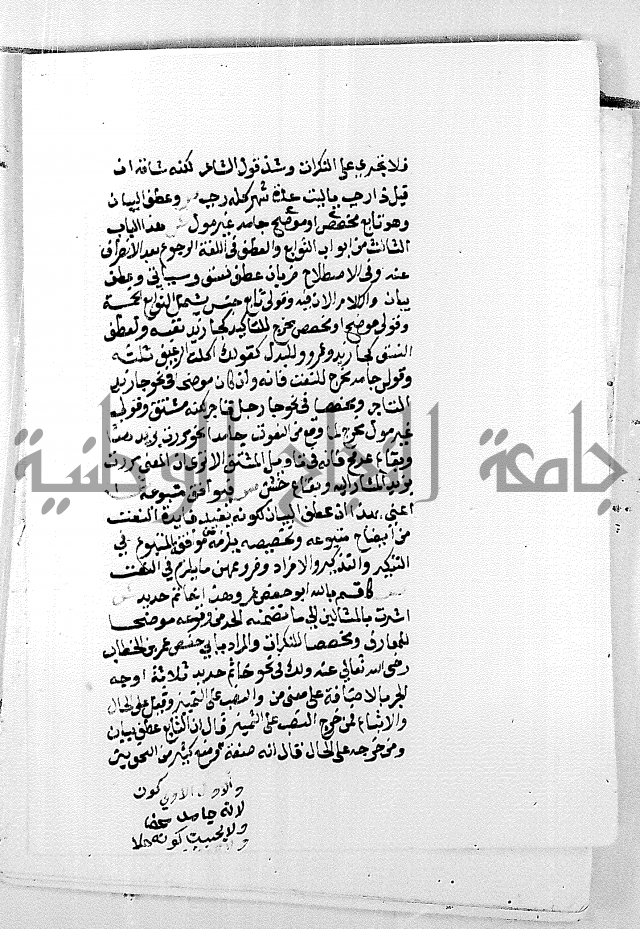 فلا تجري على النكرات وشذ قول الشاعر لكنه شاقه ان
قيل ذا رجب ياليت عدة شهر كله رجب ص وعطف البيان
وهو تابع مخصص او موضح جامد غير مول ش هذا الباب
الثالث من ابواب التوابع والعطف في اللغة الرجوع بعد الانصراف
عنه وفي الاصطلاح ضربان عطف نسق وسياتي وعطف
بيان والكلام الان فيه وقولي تابع جنس يشمل التوابع الخمسة
وقولي موضح او مخصص مخرج للتاكيد كجا زيد نفسه ولعطف
النسق كجا زيد وعمرو وللبدل كقولك اكلت الرغيف ثلثه
وقولي جامد مخرج للنعت فانه وان كان موضحا في نحو جا زيد
التاجر ومخصصا في نحو جا رجل تاجر لكنه مشتق وقولي
غير مول مخرج لما وقع من النعوت جامدا نحو مررت بزيد هذا
وبقاع عرفج فانه في تاويل المشتق الا ترى ان المعنى مررت
بزيد المشار اليه وبقاع خشن ص فيوافق متبوعه ش
اعني بهذا ان عطف البيان لكونه يفيد فايدة النعت
من ايضاح متبوعه وتخصيصه يلزمه من موافقة المتبوع في
التنكير والتذكير والافراد وفروعهن ما يلزم في النعت
ص كاقسم بالله ابو حفص عمر وهذا خاتم حديد ش
اشرت بالمثالين الى ما تضمنه الحد من وقوعه موضحا
للمعارف ومخصصا للنكرات والمراد بابي حفص عمر بن الخطاب
رضى الله تعالى عنه ولك في نحو خاتم حديد ثلاثة اوجه
الجر بالاضافة على معنى من والنصب على التمييز وقيل على الحال
والاتباع فمن خرج النصب على التمييز قال ان التابع عطف بيان
ومن خرجه على الحال قال انه صفة ومنع كثير من النحويين
والاول اولى
لانه جامد
ولا يحسن كونه حالا
جامعة النجاح الوطنية